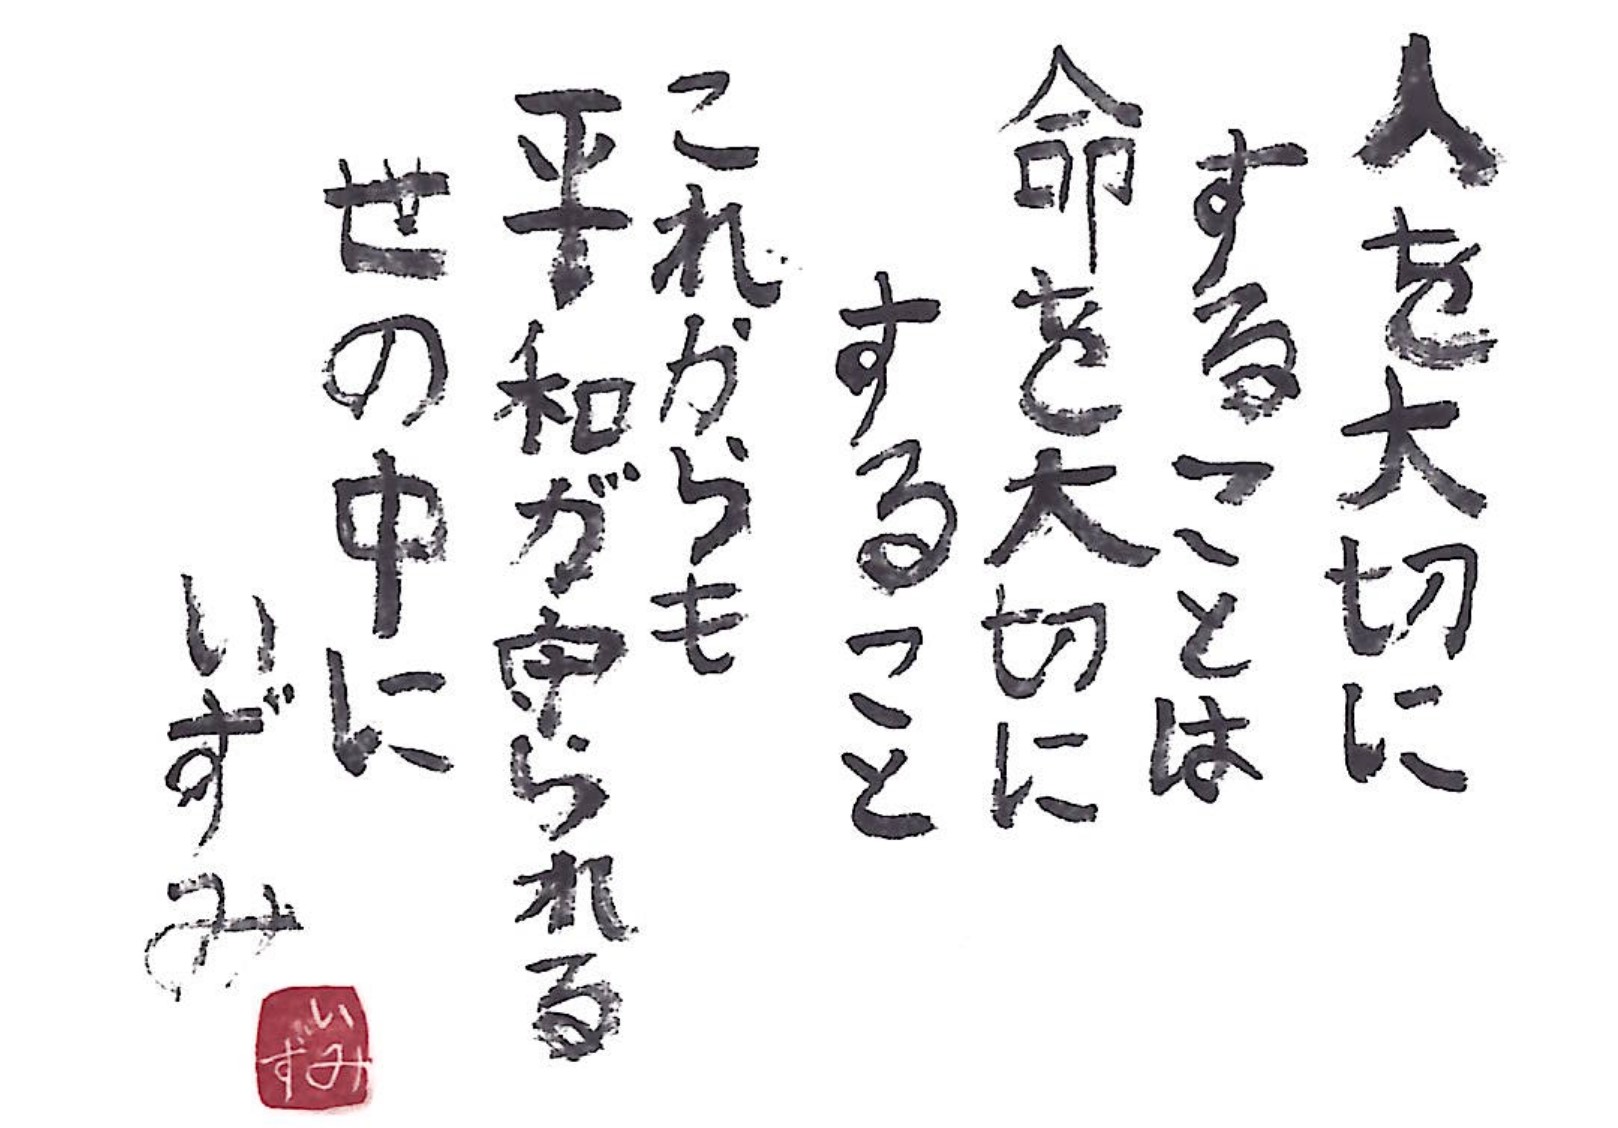 人を大切に
することは
命を大切に
すること
これからも
平和が守られる
世の中に
いずみ
いずみ